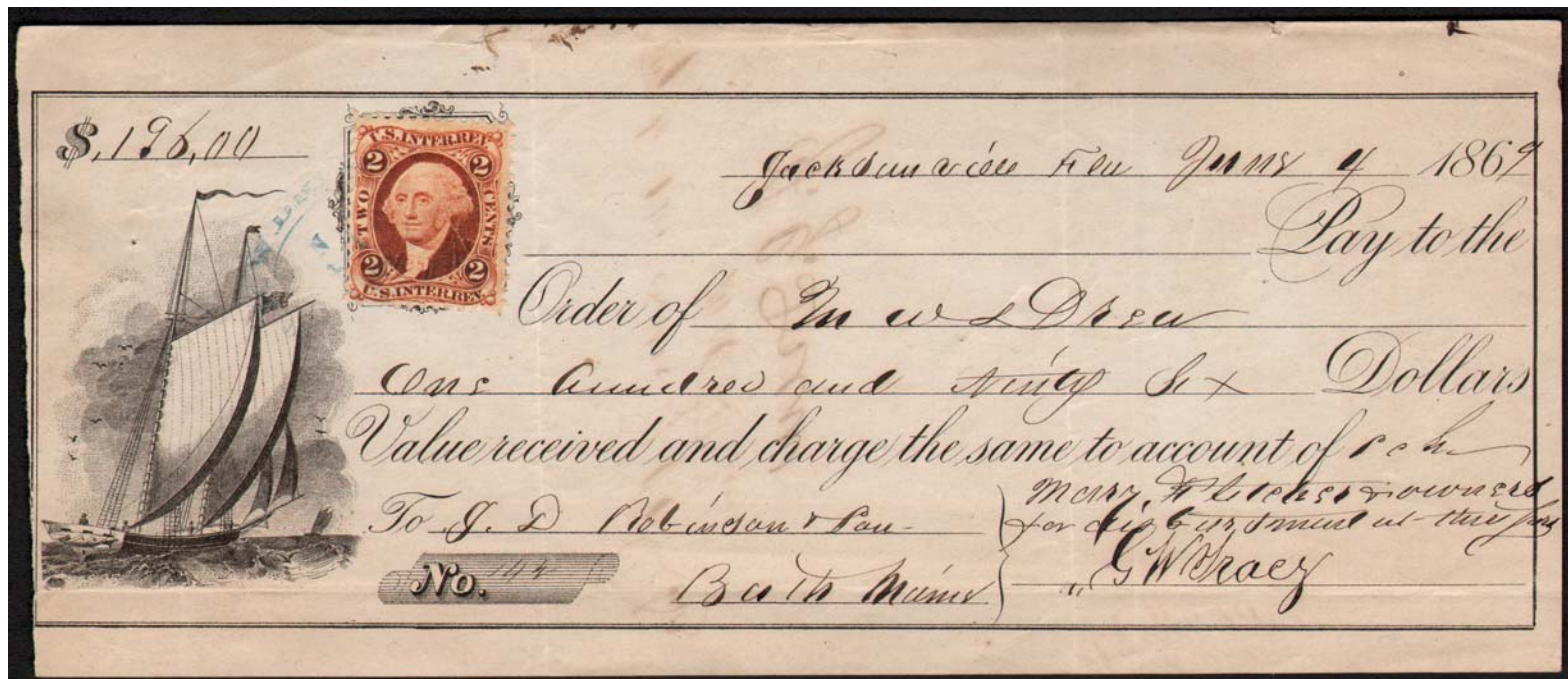 $ 196,00
U.S. INTER. REV.
2 2
TWO CENTS
2 2
U.S. INTER. REV.
Jacksonville Fla June 4 1869
Pay to the
Order of M W & Drew
One hundred and Ninty Six Dollars
Value received and charge the same to account of Sch
Mary Fletcher & owners
for disbursment at this port
To J. D Robinson &
No. Bath Maine
G W Tracy